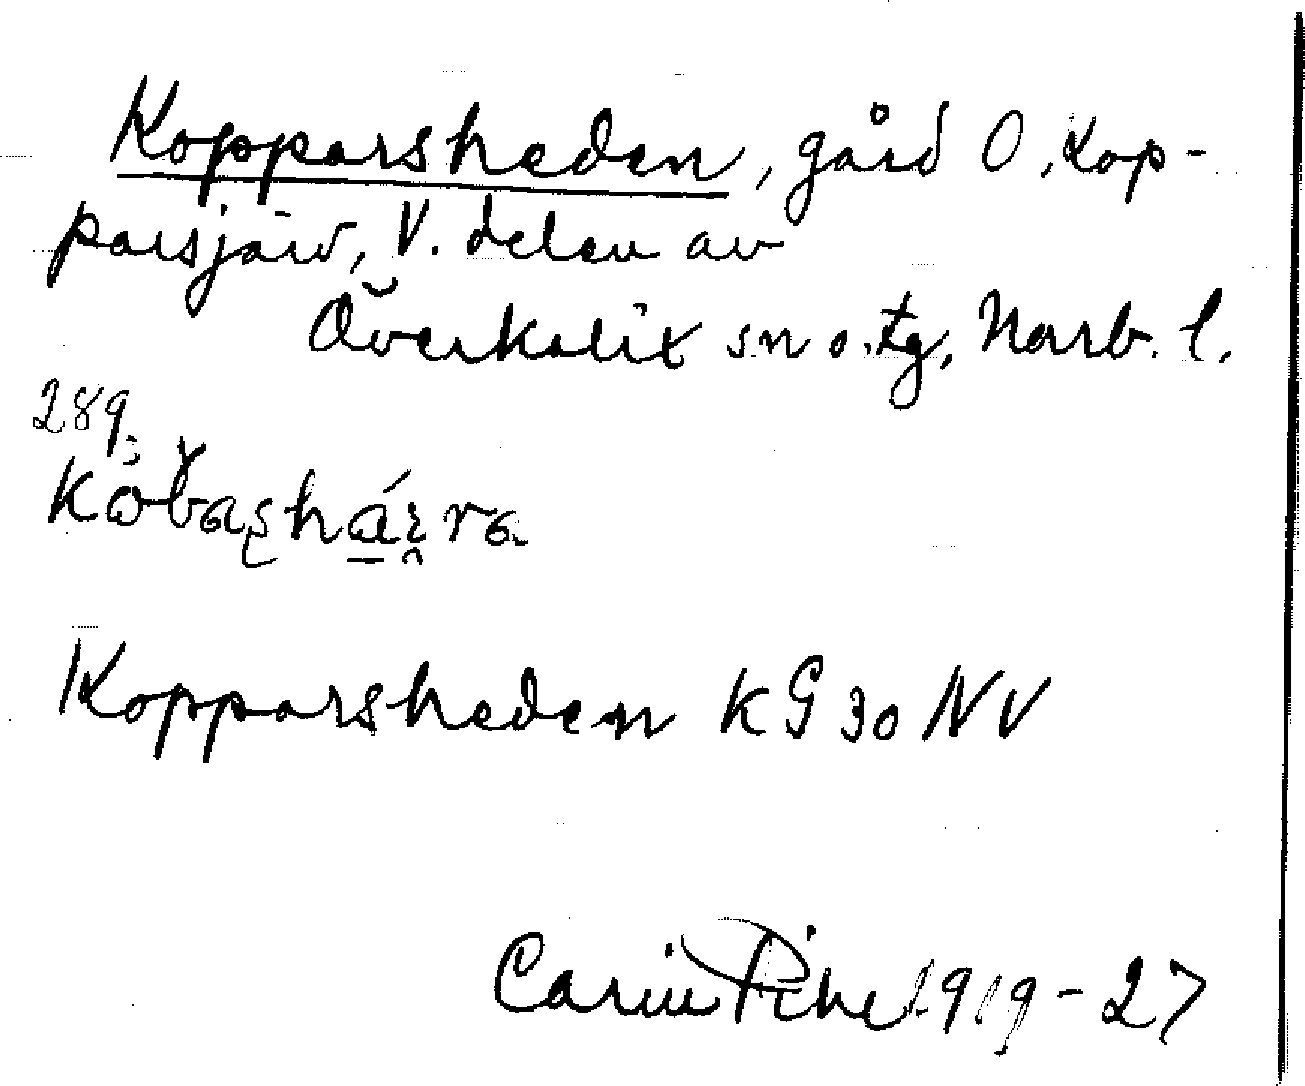 Kopparsheden, gård O, Kop-
parsjärv, V. delen av
Överkalix sn o. tg, Norrb. l.
289.
Kopparsheden KG 30 NV
Carin Pihl 1919-27